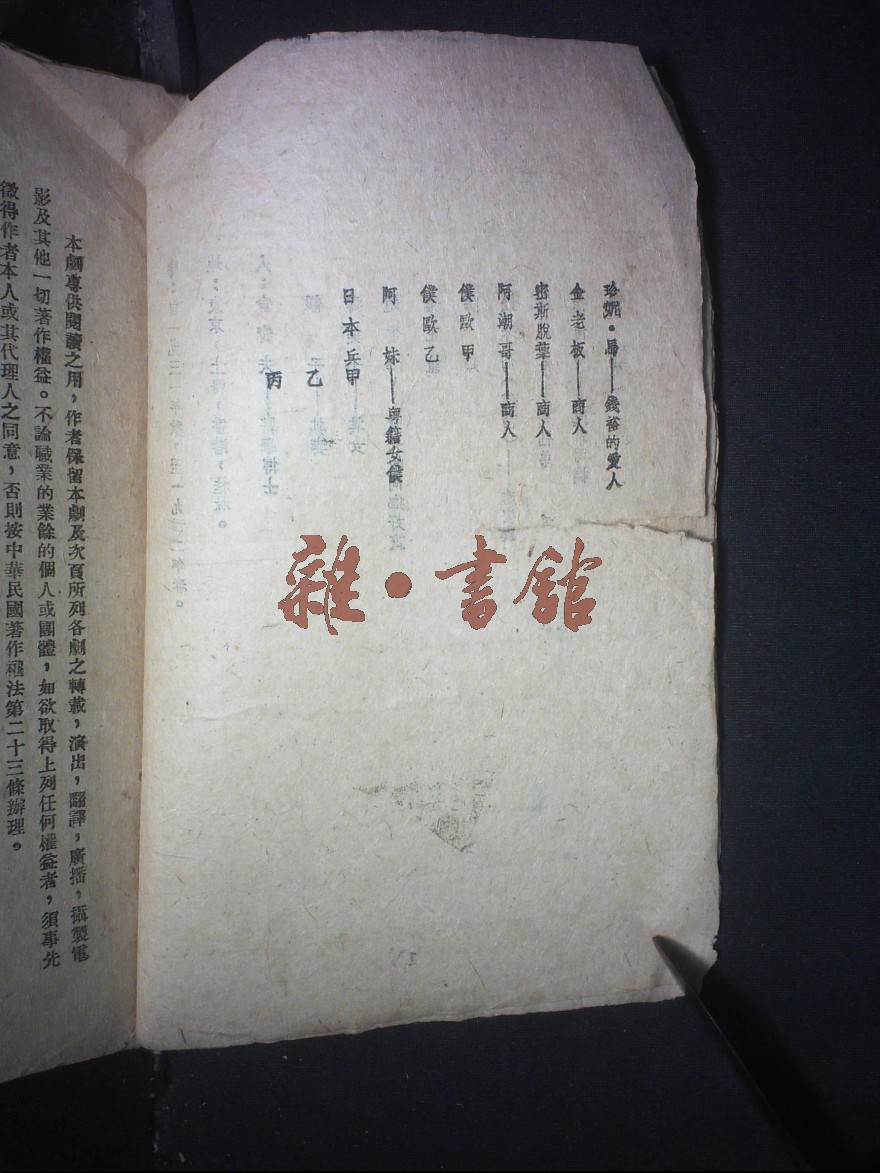 珍妮·馬——錢裕的愛人
金老板——商人
密斯脫葉——商人
阿潮哥——商人
僕歐甲
僕歐乙
阿妹——粵籍女僕
日本兵甲
乙
丙
本劇專供閱讀之用，作者保留本劇及次頁所列各劇之轉載，演出，翻譯，廣播，攝製電
影及其他一切著作權益。不論職業的業餘的個人或團體，如欲取得上列任何權益者，須事先
徵得作者本人或其代理人之同意，否則按中華民國著作權法第二十三條辦理。
雜·書館